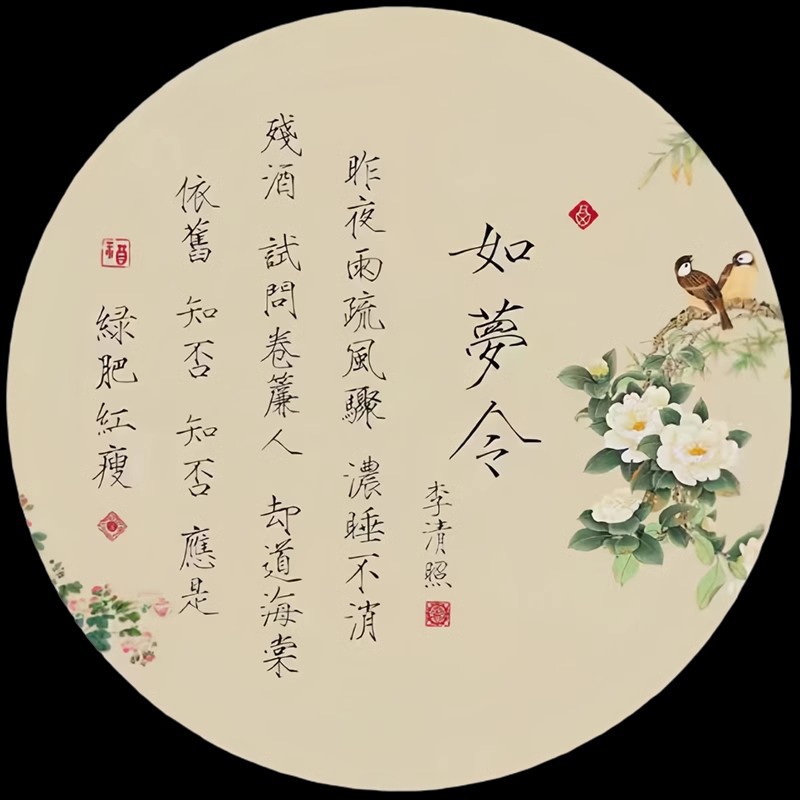 如夢令
李清照
昨夜雨疏風驟 濃睡不消
殘酒 試問卷簾人 却道海棠
依舊 知否 知否 應是
緑肥紅瘦
福